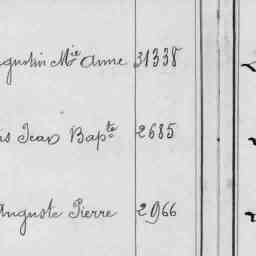 ugustin Mie Anne 31338
is Jean Bapte 2685
Auguste Pierre 2966